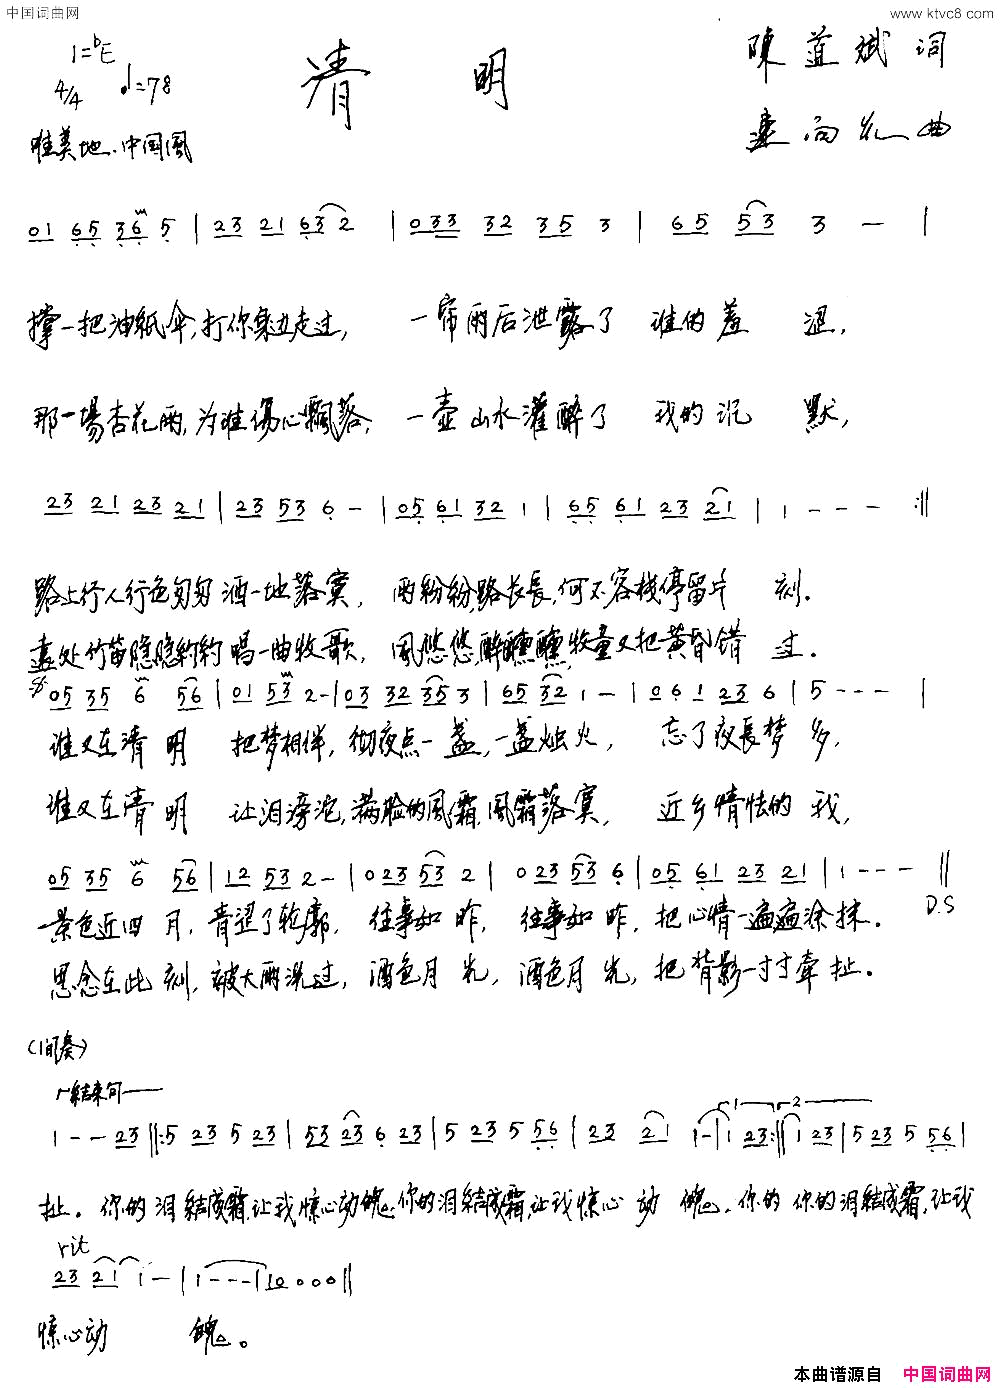 中国词曲网 www.ktvc8.com
1=bE
4/4 ♩=78
清 明
陳益斌 词
向 曲
唯美地.中国風
01 65 36 5 | 23 21 63 2 | 033 32 35 3 | 65 53 3 — |
撑一把油紙伞,打你身边走过, 一帘雨后泄露了 谁的羞 涩,
那一場杏花雨,为谁傷心飄落, 一壶山水灌醉了 我的沉 默,
23 21 23 21 | 23 53 6 - | 05 61 32 1 | 65 61 23 21 | 1 - - - :||
路上行人行色匆匆洒一地落寞, 雨紛紛,路长長,何不客栈停留片 刻.
遠处竹笛隐隐約約唱一曲牧歌, 風悠悠醉醺醺,牧童又把黄昏错 过.
05 35 6 56 | 01 53 2- | 03 32 35 3 | 65 32 1 - | 0 6 1 23 6 | 5 - - - |
谁又在清 明 把梦相伴, 彻夜点一盏,一盏烛火, 忘了夜長梦 多,
谁又在清 明 让泪滂沱,满脸的風霜,風霜落寞, 近乡情怯的 我,
05 35 6 56 | 12 53 2 - | 0 23 53 2 | 0 23 53 6 | 05 61 23 21 | 1 - - - ||
D.S
景色近四 月, 青澀了轮廓, 往事如 昨, 往事如 昨, 把心情一遍遍涂抹.
思念在此 刻, 被大雨洗过, 酒色月 光, 酒色月 光, 把背影一寸寸牵扯.
(间奏)
结束句——
1 2
1 - - 23 ||: 5 23 5 23 | 53 23 6 23 | 5 23 5 56 | 23 21 1 - | 1 23 :|| 1 23 | 5 23 5 56 |
扯. 你的泪結成霜,让我惊心动魄,你的泪結成霜,让我惊心 动 魄. 你的 你的泪結成霜,让我
rit
23 21 1 - | 1 - - - | 10 0 0 0 ||
惊心动 魄。
本曲谱源自 中国词曲网